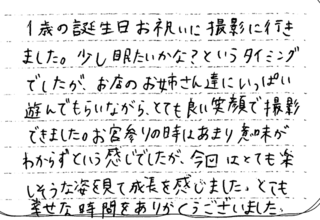 1歳の誕生日お祝いに撮影に行き
ました。少し眠たいかな?というタイミング
でしたが、お店のお姉さん達にいっぱい
遊んでもらいながら、とても良い笑顔で撮影
できました。お宮参りの時はあまり意味が
わからずという感じでしたが、今回はとても楽
しそうな姿を見て成長を感じました。とても
幸せな時間をありがとうございました。